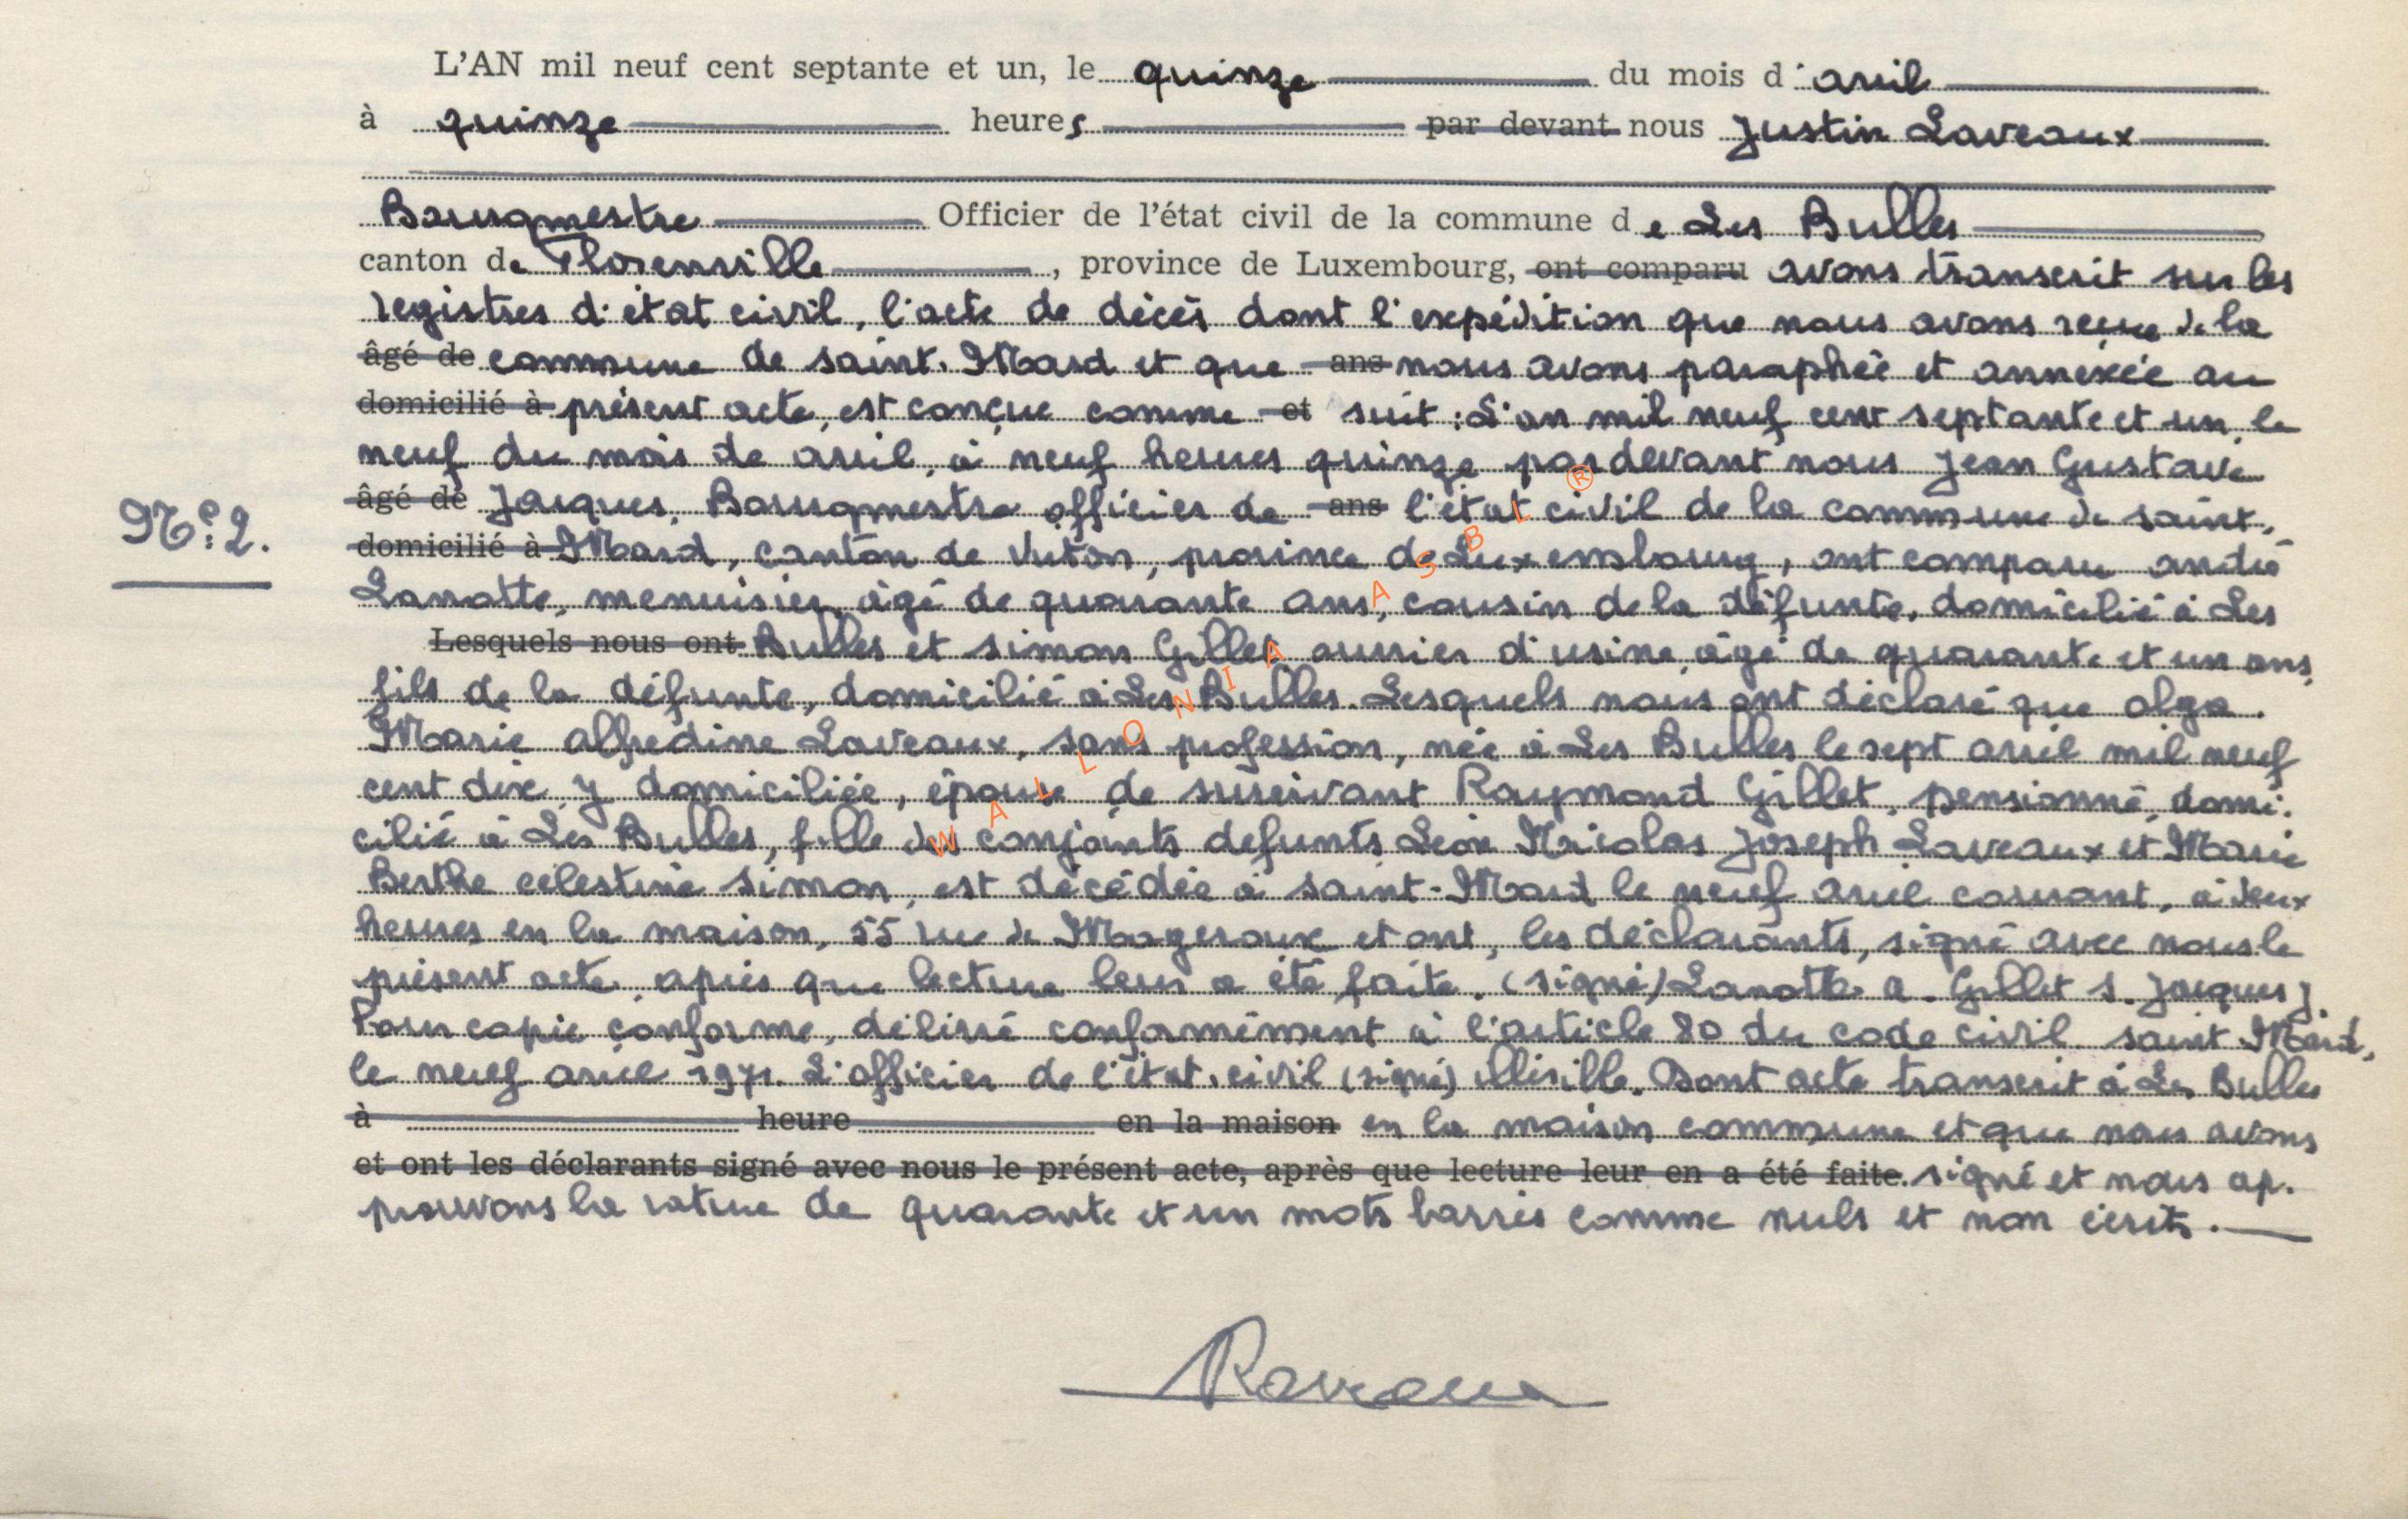 L'AN mil neuf cent septante et un, le quinze du mois d'avril
à quinze heures par devant nous Justin Laveaux
Bourgmestre Officier de l'état civil de la commune de Les Bulles
canton de Florenville, province de Luxembourg, ont comparu avons transcrit sur les
registres d'état civil, l'acte de décès dont l'expédition que nous avons reçue de la
âgé de commune de Saint-Mard et que ans nous avons paraphée et annexée au
domicilié à présent acte, est conçue comme et suit : L'an mil neuf cent septante et un, le
neuf du mois de avril, à neuf heures quinze par devant nous Jean Gustave
âgé de Jacques, Bourgmestre officier de ans l'état civil de la commune de Saint-
N°: 2.
domicilié à Mard, canton de Virton, province de Luxembourg, ont comparu André
Lanotte, menuisier, âgé de quarante ans, cousin de la défunte, domicilié à Les
Lesquels nous ont Bulles et Simon Gillet ouvrier d'usine, âgé de quarante et un ans,
fils de la défunte, domicilié à Les Bulles. Lesquels nous ont déclaré que Olga
Marie Alfrédine Laveaux, sans profession, née à Les Bulles le sept avril mil neuf
cent dix, y domiciliée, épouse de survivant Raymond Gillet, pensionné, domi-
cilié à Les Bulles, fille des conjoints defunts Léon Nicolas Joseph Laveaux et Marie
Berthe Célestine Simon, est décédée à Saint-Mard le neuf avril courant, à deux
heures en la maison, 55 rue de Mageroux et ont, les déclarants, signé avec nous le
présent acte, après que lecture leur a été faite. (signé) Lanotte A. Gillet S. Jacques J.
Pour copie conforme, délivré conformément à l'article 80 du code civil. Saint Mard,
le neuf avril 1971. L'officier de l'état civil (signé) illisible. Dont acte transcrit à Les Bulles
à heure en la maison en la maison commune et que nous avons
et ont les déclarants signé avec nous le présent acte, après que lecture leur en a été faite. signé et nous ap-
prouvons la rature de quarante et un mots barrés comme nuls et non écrits.
Laveaux
WALLONIA ASBL ®